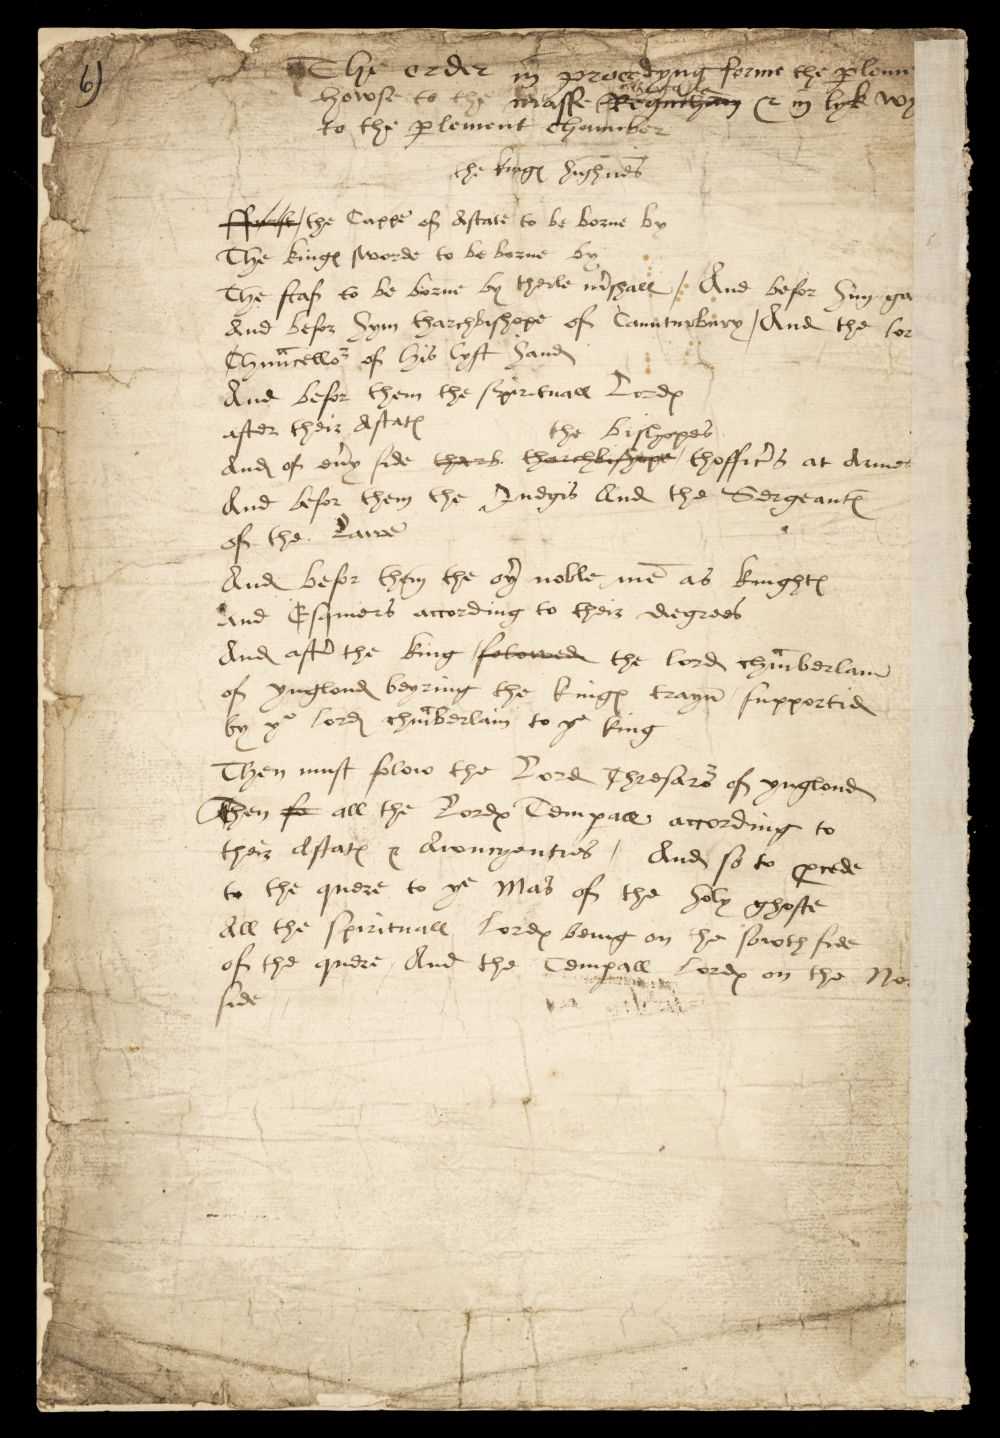 6)
The order in procedyng forme the plemen
howse to the masse Requiham & in lyk wy
to the plement chamber
the kinges highnes
ffurst / the Cappe of Astate to be borne by
The kinges sworde to be borne by
The staf to be borne by therle mshall / And befor hym ga
And befor hym tharchbishope of Canturbury / And the lor
Chauncellor of his lyft hand
And befor them the spirituall Lordes
after their Astates
the bishopes
And of eury side tharb tharchbishope / thofficers at Armes
And befor them the Judgis And the Sergeantes
of the Lawe
And befor them the oyr noble men as knightes
And Esquiers according to their degrees
And after the king folowed the lord chamberlain
of ynglond beyring the kinges trayn supportid
by ye lord chamberlain to ye king
Then must folow the Lord Thresaror of ynglond
Then fo all the Lordes Tempall according to
their Astates & Auncyentres / And so to pcede
to the quere to ye Mas of the holy ghoste
All the spirituall Lordes being on the sowth side
of the quere And the Tempall Lordes on the No
side